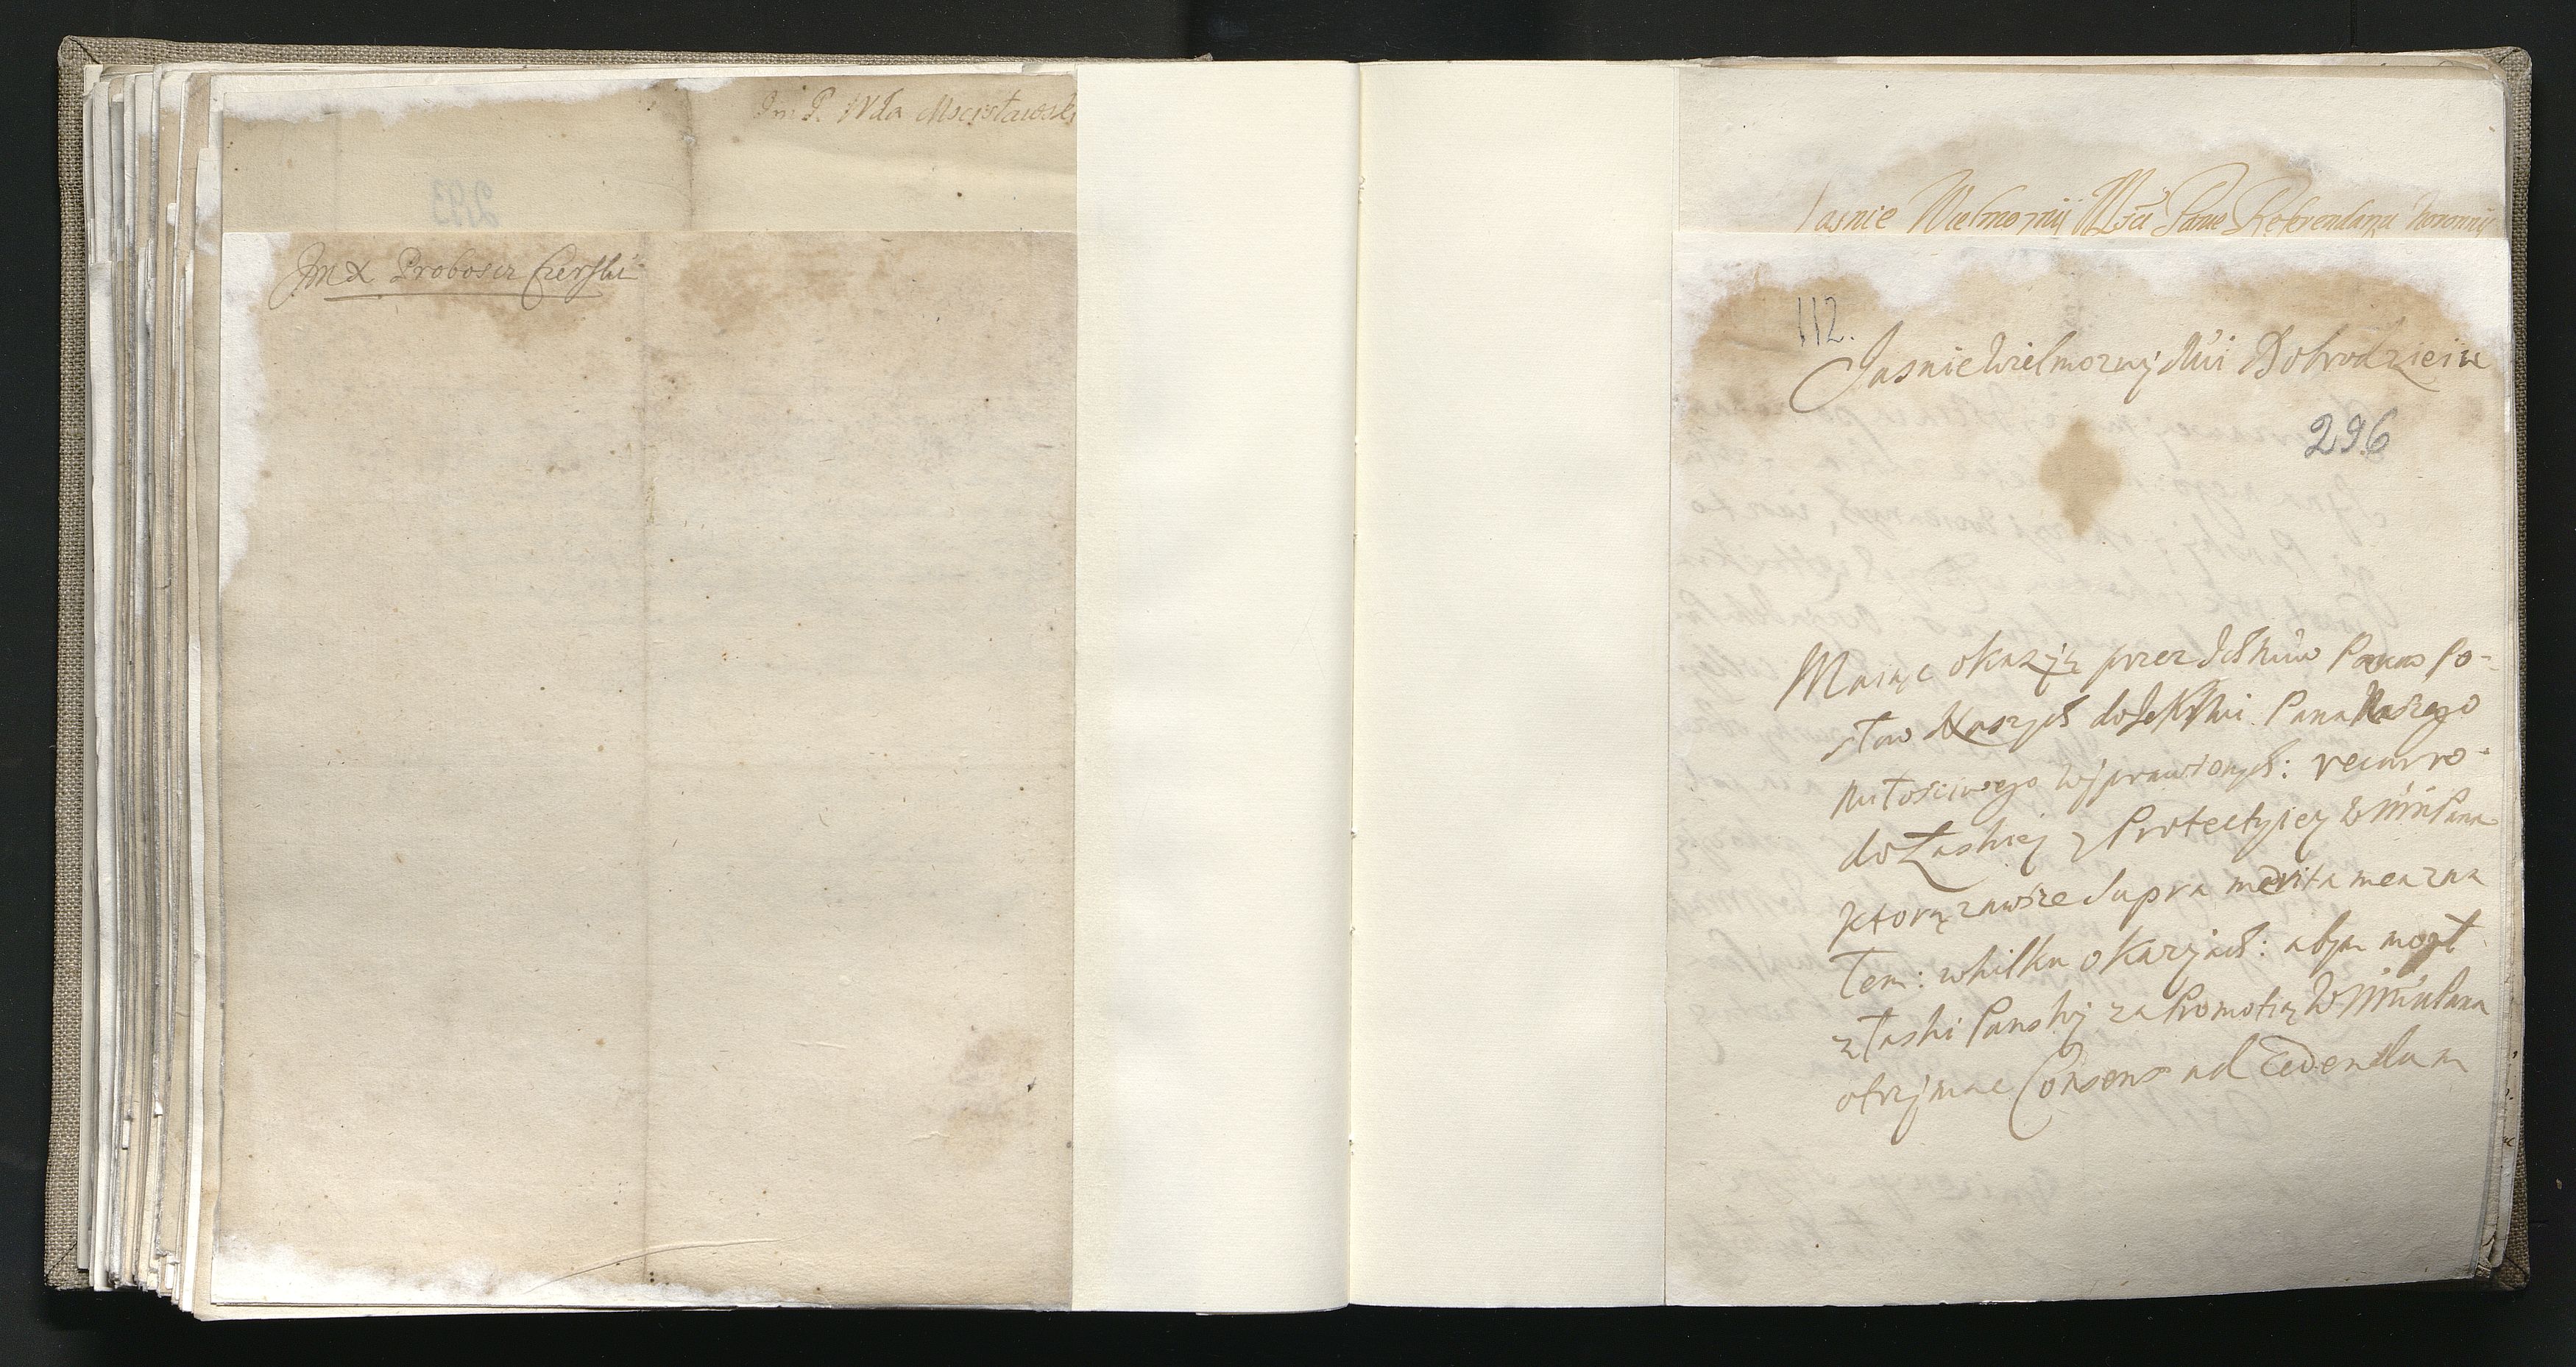 Im P. Wda Mscisławski
293
Im X Proboscz Czerski
Jasnie Wielmozny Mści Panie Referendarzu Koronny
112.
Jasnie Wielmozny Mści Dobrodzieiu
296
Maiąc okazją przez Ichmciow Panow Po-
słow Naszych do JeKMści Pana Naszego
Miłosciwego wyprawionych: recurro
do Łaskiey y Protectyiey WMMPana
ktorą zawsze supra merita mea zna
łem: w kilku okazjach: abym mogł
z łaski Panskiy za Promotią WMMPana
otrzymac Consens ad Cedendum